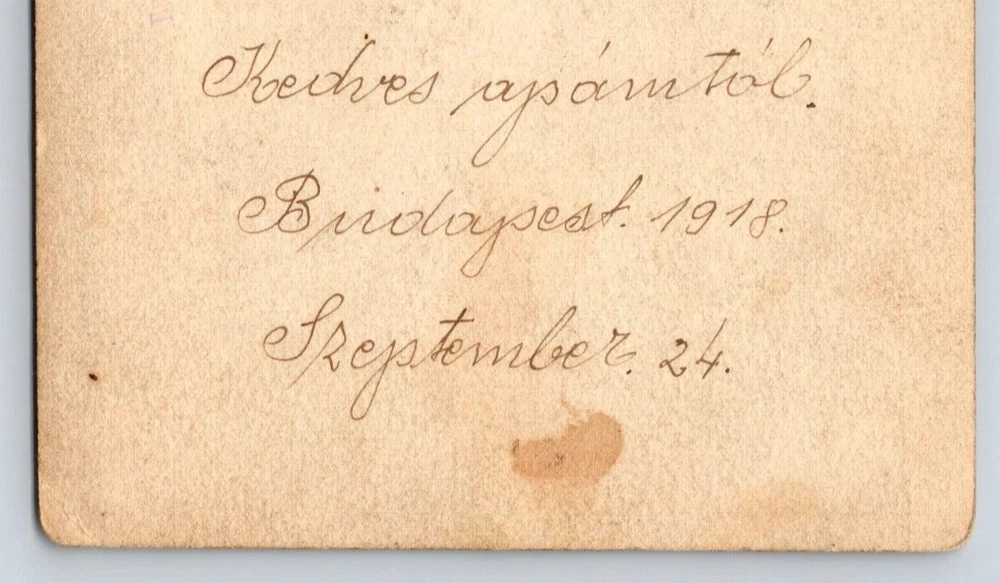 Kedves apámtól.
Budapest. 1918.
Szeptember. 24.